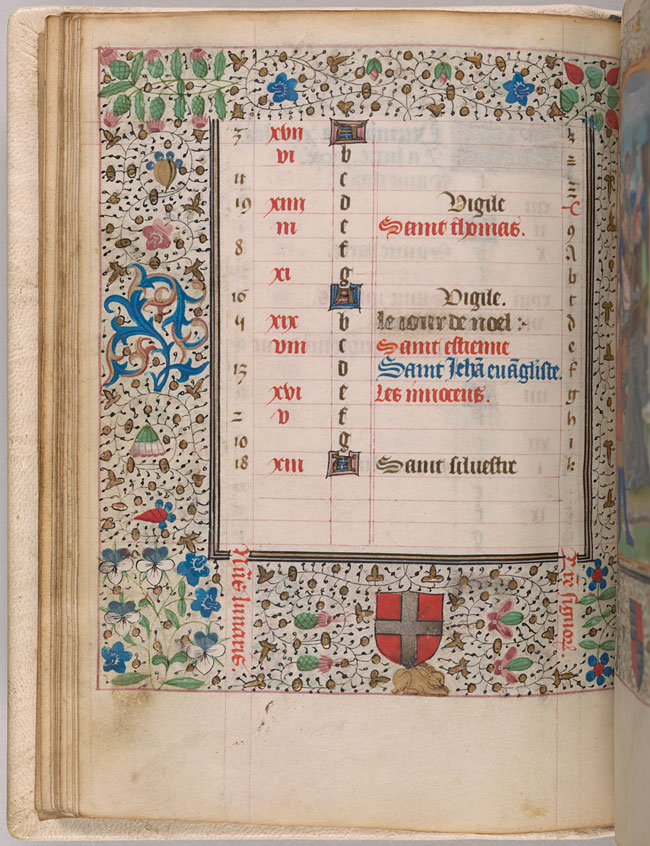 3 xvii A
vi b
11 c
19 xiiii d Vigile
iii e Saint thomas. 9
8 f A
xi g b
16 A Vigile. c
5 xix b le iour de noel :- d
viii c Saint estienne e
13 d Saint Jehã euãgliste. f
xvi e Les innocens. g
2 v f h
10 g i
18 xiii A Saint siluestre k
lunaris
signoꝝ